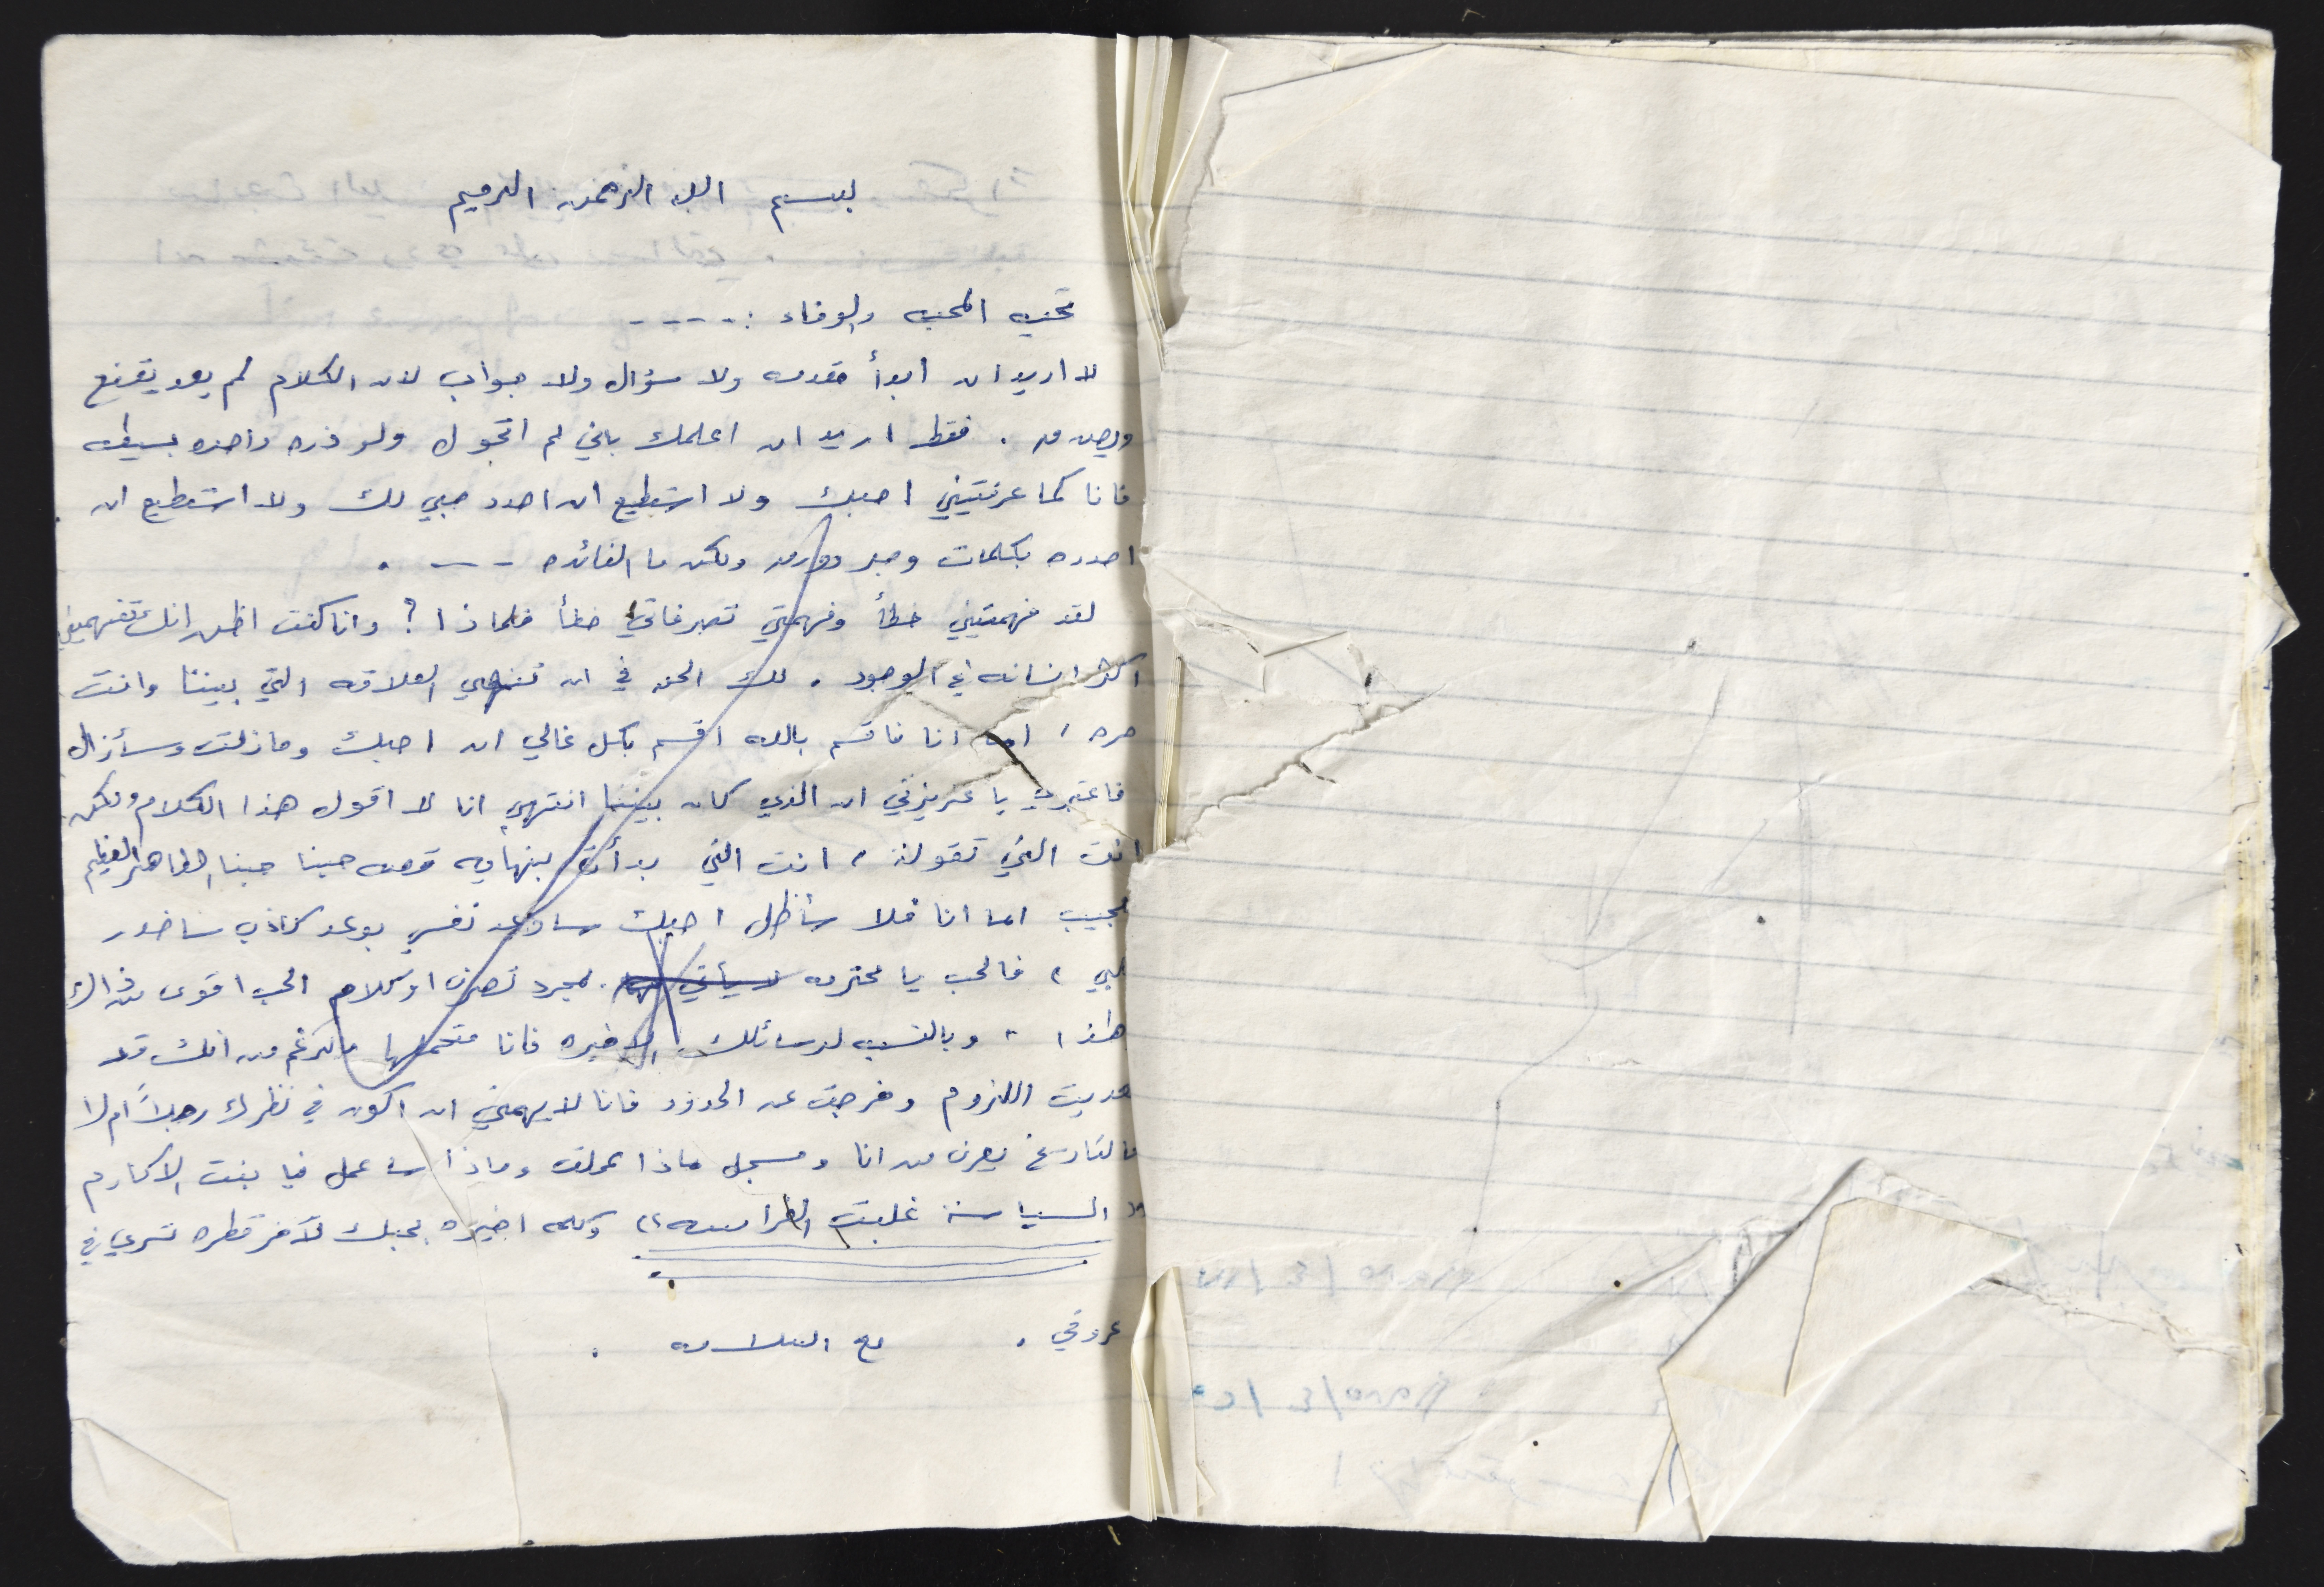 بسم الله الرحمن الرحيم
تحيه المحبه والوفاء :-----
لا اريد ان ابدأ مقدمه ولا سؤال ولا جواب لان الكلام لم يعد يقنع
ويصدق . فقط اريد ان اعلمك باني لم اتحول ولو ذره واحده بسيطه
فانا كما عرفتيني احبك ولا استطيع ان احدد حبي لك ولا استطيع ان
احدده بكلمات وحبر وورق ولكن ما الفائده --- .
لقد فهمتيني خطأ وفهمتي تصرفاتي خطأ فلماذا ؟ وانا كنت اظن انك تفهميني
اكثر انسانه في الوجود . لك الحق في ان تنهي العلاقه التي بيننا وانت
حره ، اما انا فاقسم بالله اقسم بكل غالي ان احبك وما زلت وسأزال
فاعتبري يا عزيزتي ان الذي كان بيننا انتهي انا لا اقول هذا الكلام ولكن
انت التي تقولة ، انت التي بدأت بنهايه قصه حبنا حبنا الطاهر العظيم
اما انا فلا سأظل احبك ساوعد نفسي بوعد كاذب
، فالحب يا محترمه لا يأتي بمجرد تصرف او كلام الحب اقوى من ذالك
هذا ، وبالنسبه لرسائلك الاخيره فانا متحملها بالرغم من انك قد
عديت اللزوم وخرجت عن الحدود فانا لا يهمني ان اكون في نظرك رجلاً ام لا
فالتارخ يعرف من انا ومسجل ماذا عملت وماذا سأعمل فيا بنت الاكارم
(( السياسة غلبت )) وكلمه اخيره بحبك لآخر قطره تسري في
عروقي . مع السلامه .